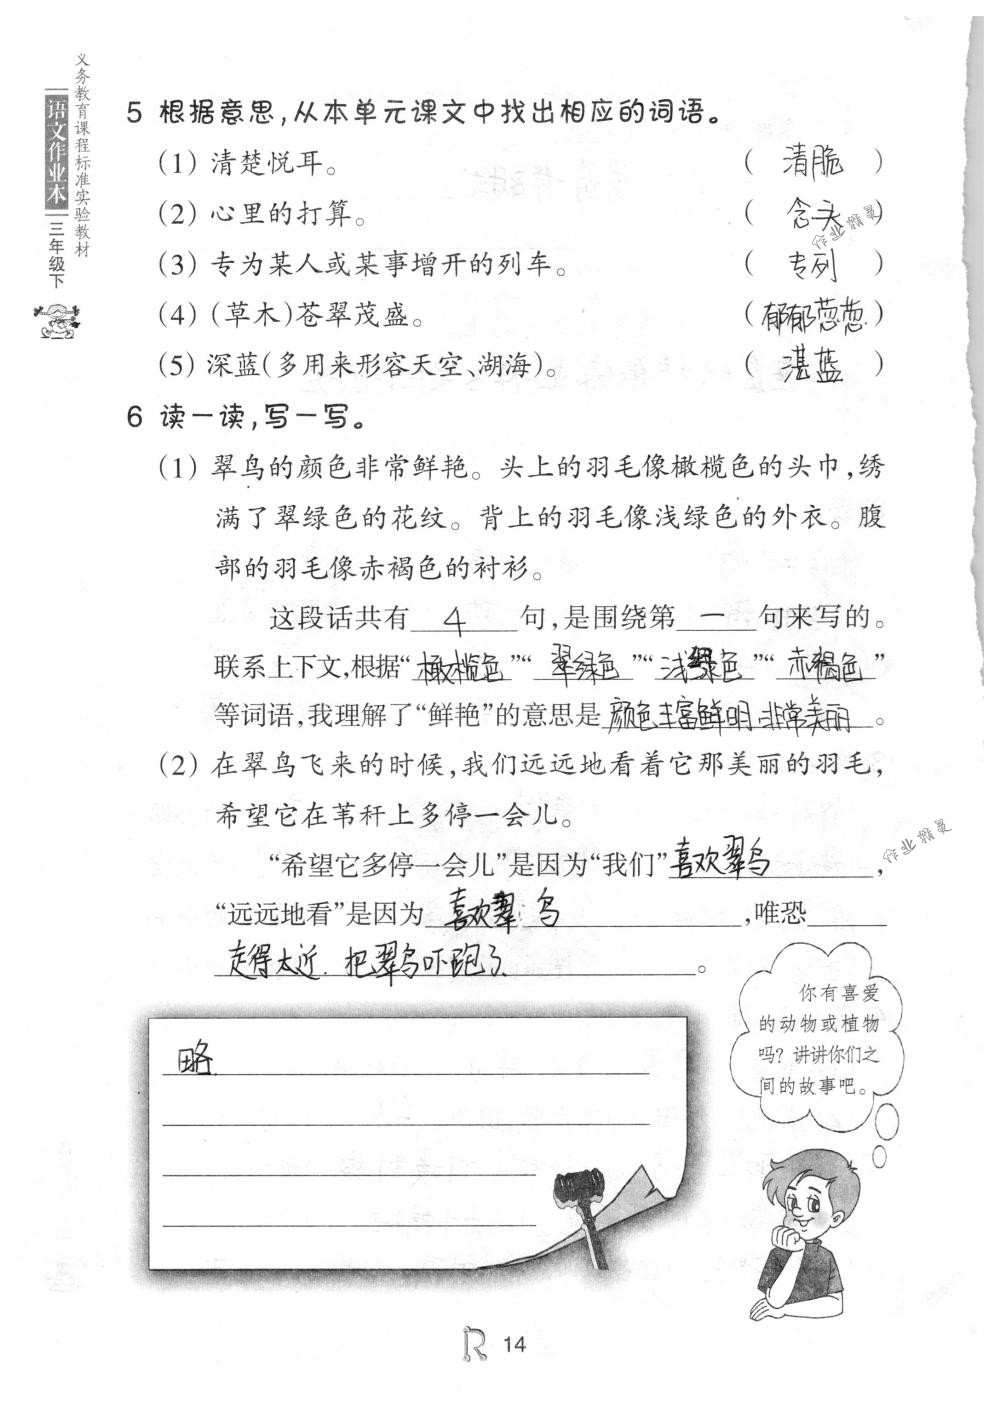 义务教育课程标准实验教材
语文作业本
三年级下
5 根据意思,从本单元课文中找出相应的词语。
(1) 清楚悦耳。 ( 清脆 )
(2) 心里的打算。 ( 念头 )
作业精灵
(3) 专为某人或某事增开的列车。 ( 专列 )
(4) (草木)苍翠茂盛。 ( 郁郁葱葱 )
(5) 深蓝(多用来形容天空、湖海)。 ( 湛蓝 )
6 读一读,写一写。
(1) 翠鸟的颜色非常鲜艳。头上的羽毛像橄榄色的头巾,绣
满了翠绿色的花纹。背上的羽毛像浅绿色的外衣。腹
部的羽毛像赤褐色的衬衫。
这段话共有 4 句,是围绕第 一 句来写的。
联系上下文,根据“橄榄色”“翠绿色”“浅绿色”“赤褐色”
等词语,我理解了“鲜艳”的意思是颜色丰富鲜明,非常美丽。
(2) 在翠鸟飞来的时候,我们远远地看着它那美丽的羽毛,
希望它在苇秆上多停一会儿。
“希望它多停一会儿”是因为“我们”喜欢翠鸟,
作业精灵
“远远地看”是因为 喜欢翠鸟 ,唯恐
走得太近.把翠鸟吓跑了。
略
你有喜爱
的动物或植物
吗？讲讲你们之
间的故事吧。
R 14